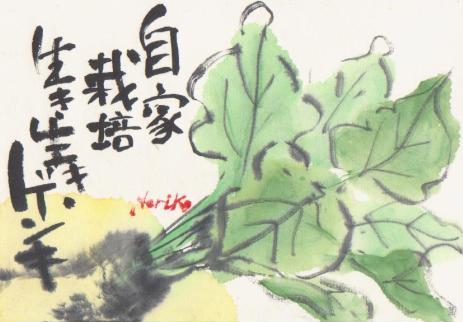 自家
栽培
生き生きゲンキ
Noriko